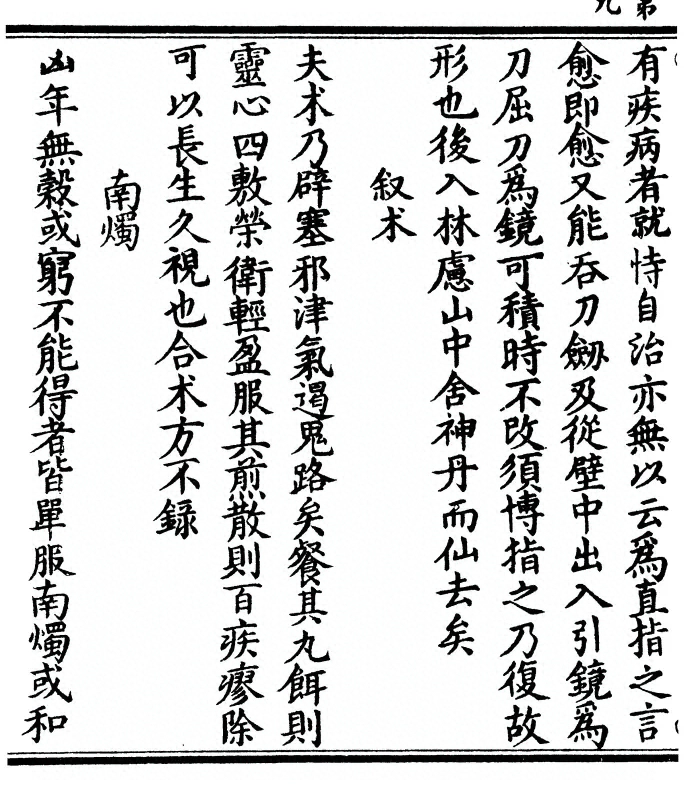 有疾病者就恃自治亦無以云爲直指之言
愈即愈又能吞刀劒及從壁中出入引鏡爲
刀屈刀爲鏡可積時不改須博指之乃復故
形也後入林慮山中舍神丹而仙去矣
叙术
夫术乃辟塞邪津氣遏鬼路矣餐其丸餌則
靈心四敷榮衛輕盈服其煎散則百疾瘳除
可以長生久視也合术方不録
南燭
凶年無糓或窮不能得者皆單服南燭或和